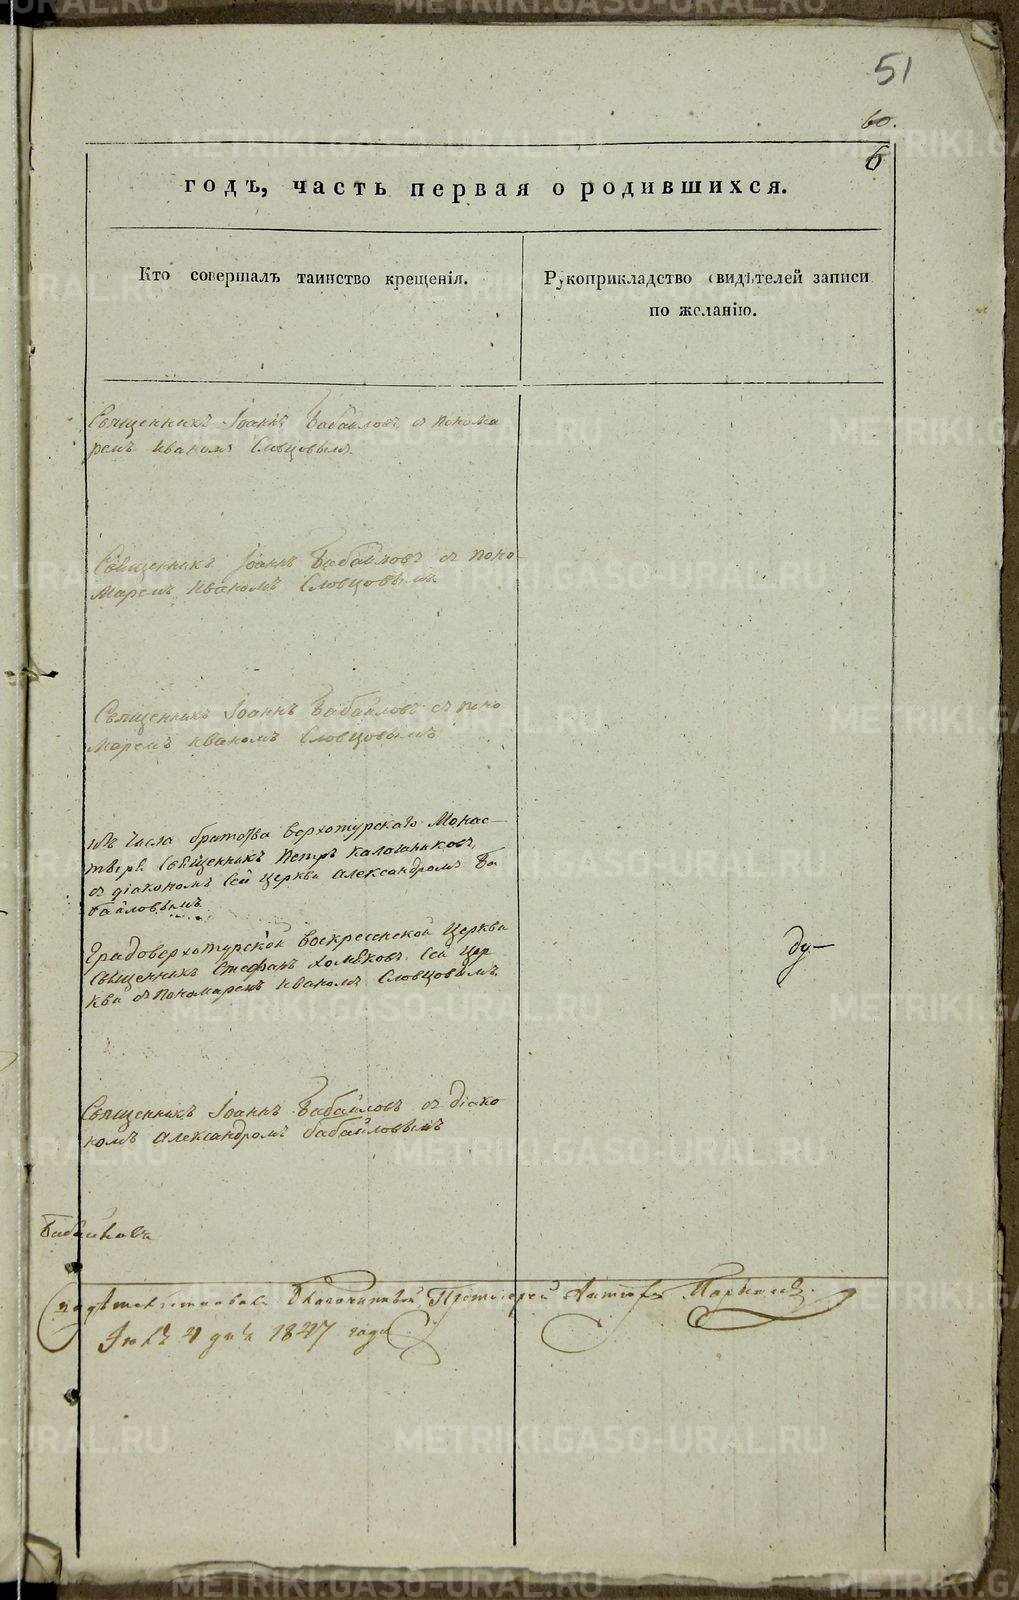 51
60.
6
годъ, часть первая о родившихся.
Кто совершалъ таинство крещенія.
Рукоприкладство свидѣтелей записи
по желанію.
Священникъ Іоаннъ Бабайловъ съ понома
ремъ Иваномъ Словцовымъ.
Священникъ Іоаннъ Бабайловъ съ поно-
маремъ Иваномъ Словцовымъ
Священникъ Іоаннъ Бабайловъ съ поно
маремъ Иваномъ Словцовымъ
числа братства верхотурскаго Монас-
Священникъ Петръ Калашниковъ,
съ діакономъ Сей церкви Александромъ Ба
байловымъ
Градоверхотурской воскресенской Церкви
Священникъ Стефанъ Хомяковъ, Сей цер
кви съ пономаремъ Иваномъ Словцовымъ
ду-
Священникъ Іоаннъ Бабайловъ съ діако
номъ Александромъ бабайловымъ
Благочинный, Протоіерей
4 дня 1847 года
METRIKI.GASO-URAL.RU